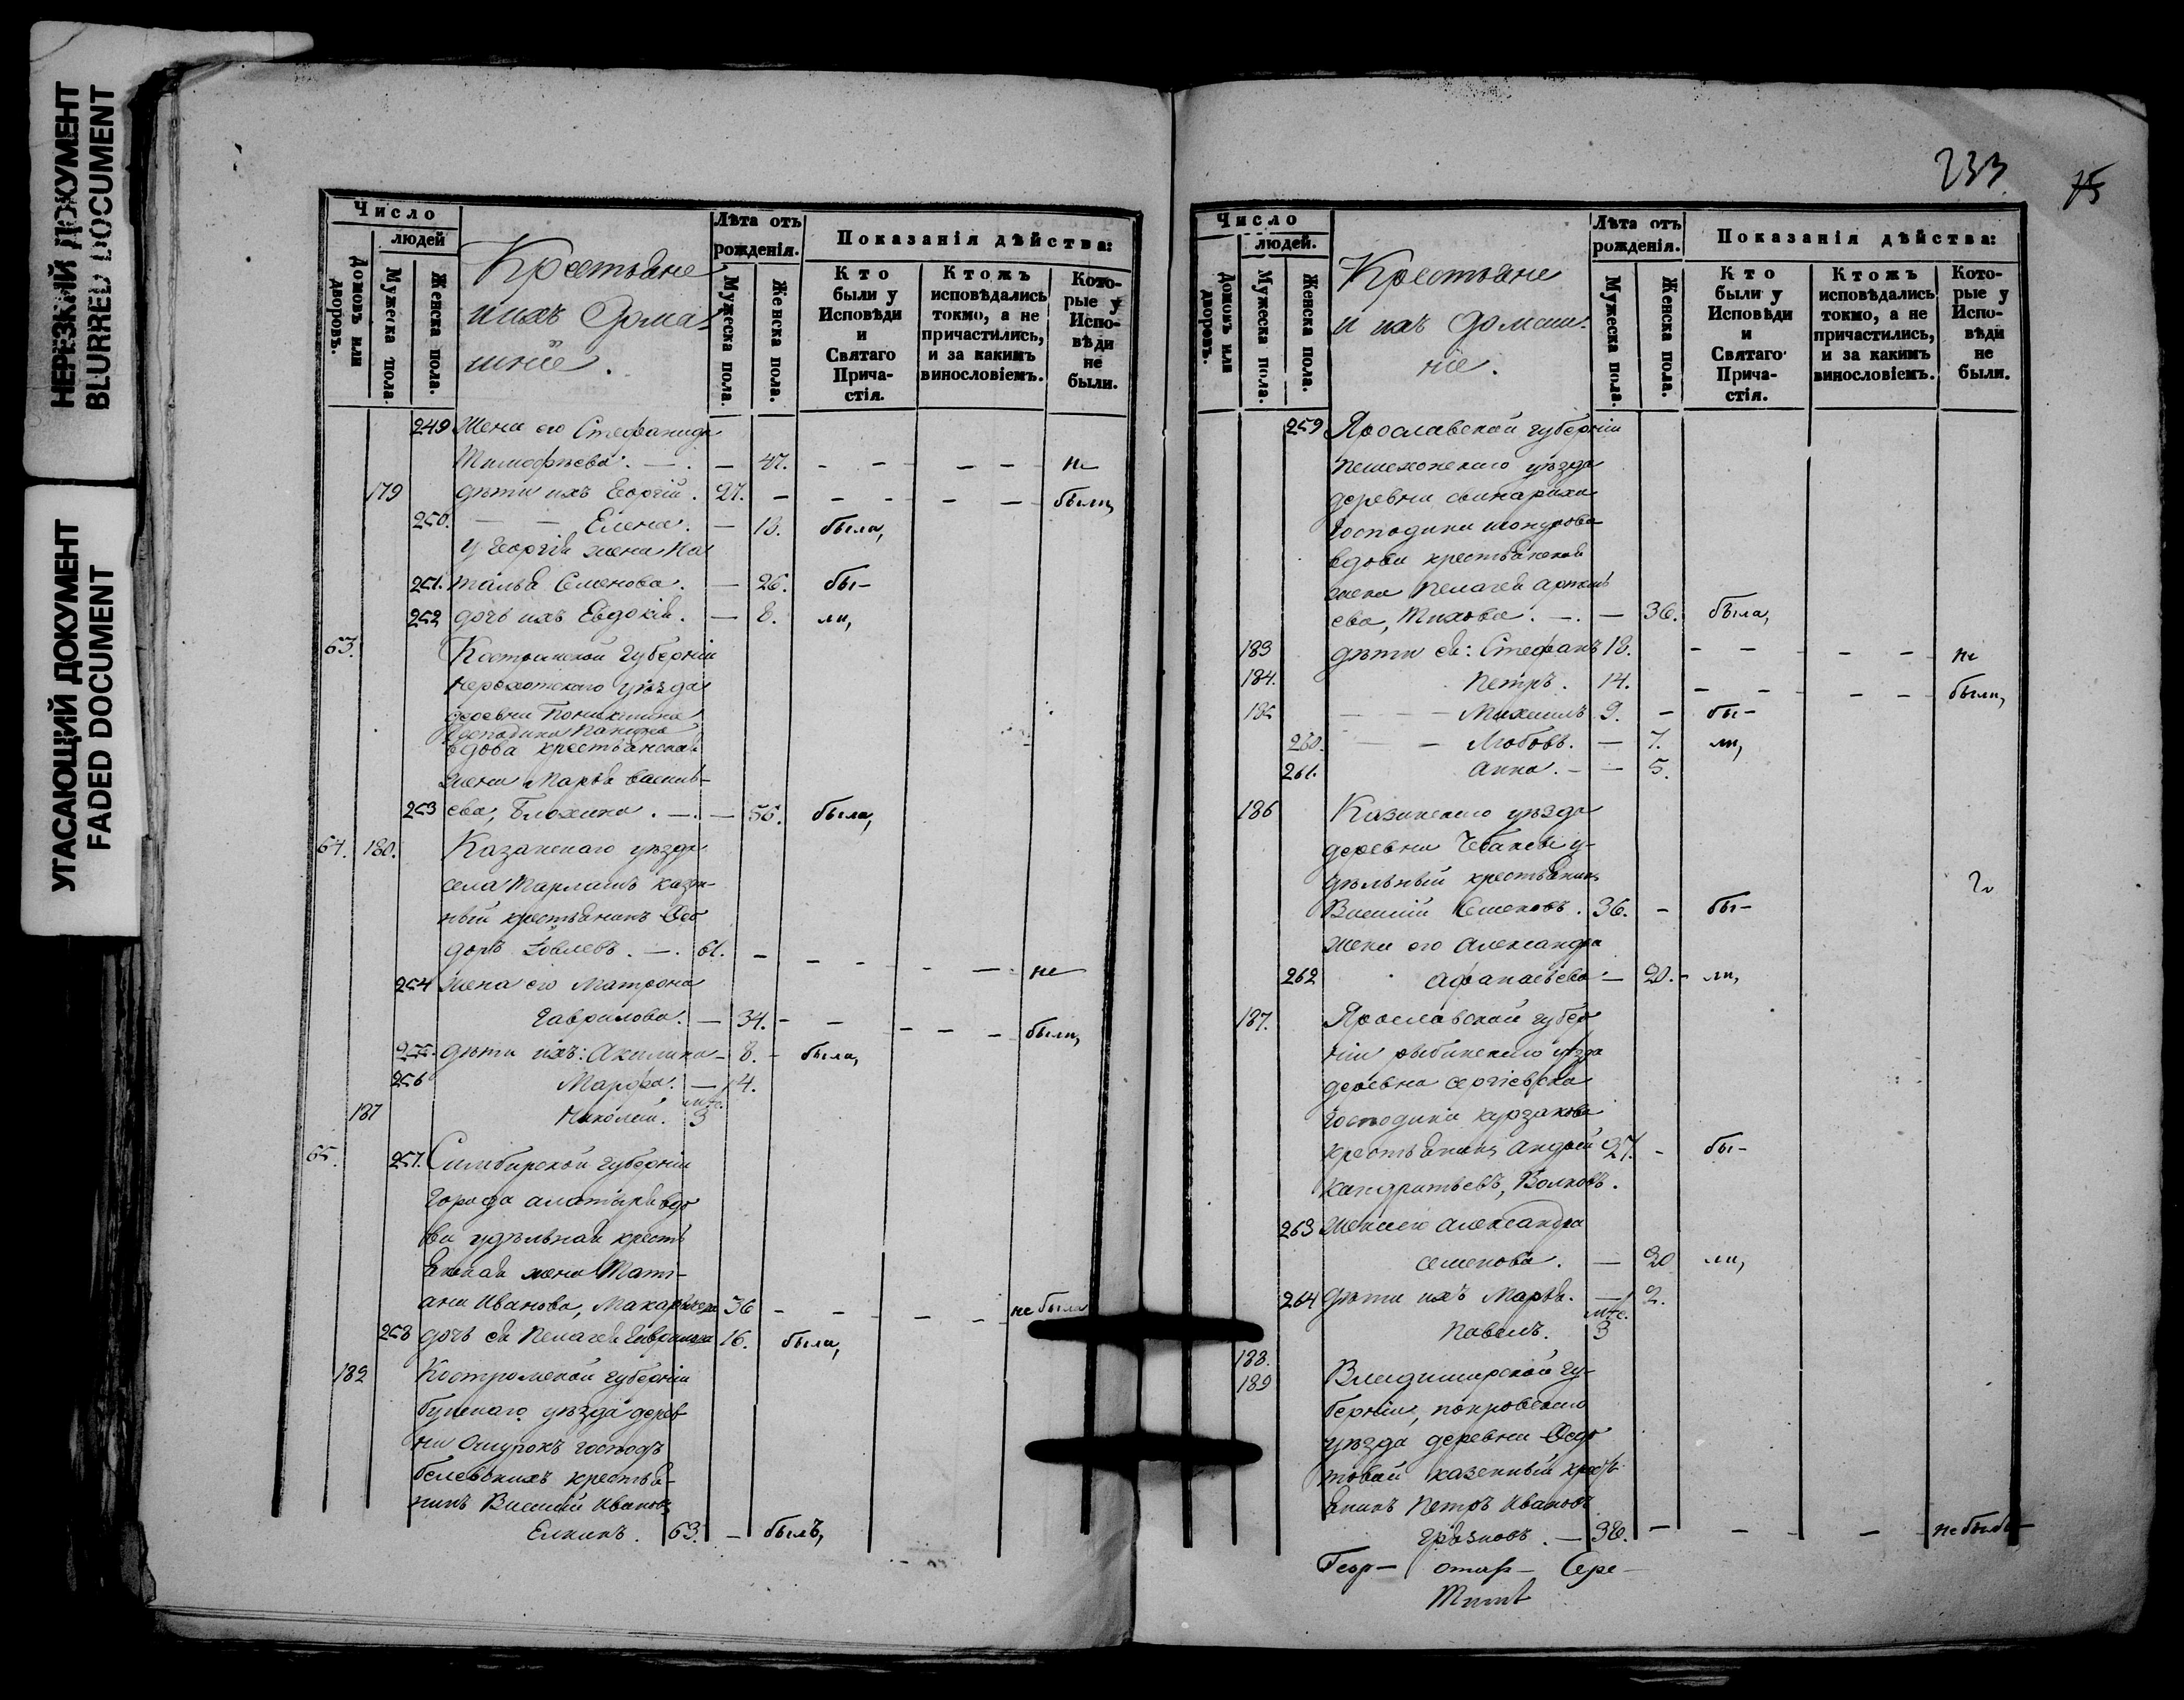 НЕРЕЗКИЙ ДОКУМЕНТ
BLURRED DOCUMENT
УГАСАЮЩИЙ ДОКУМЕНТ
FADED DOCUMENT
Число
людей
Домовъ или дворовъ.
Мужеска пола.
Женска пола.
Крестьяне
и ихъ Дома-
шніе.
Лѣта отъ
рожденія.
Мужеска пола.
Женска пола.
Показанія дѣйства:
Кто были у Исповѣди и Святаго Прича-стія.
Ктожъ исповѣдались токмо, а не причастились, и за какимъ винословіемъ.
Кото-рые у Испо-вѣди не были.
249 Жена его Стефанида
Тимофѣева. — 47. не
179 дѣти ихъ Георгій. 27. — были,
250. — — Елена. — 13. была,
у Георгія жена На
251. талья Семенова. — 26. бы-
252 дочь ихъ Евдокія. — 8. ли,
63. Костромской Губерніи
Нерехотскаго уѣзда
деревни
Господина
вдова крестьянская
жена Марья Василь-
253 ева, Блохина. — — 56. была,
64. 180. Казанскаго уѣзда
села Тарлашъ казен-
ный крестьянинъ Ѳео
доръ Іовлевъ. — 61. — не
254 жена его Матрона
Гаврилова. — 34. были,
255. дѣти ихъ: Акилина — 8. была,
256 Марфа. — 4.
181 Николай. мѣс. 3
65. 257. Симбирской Губерніи
города Алатыря вдо
ва удѣльная кресть
янская жена Тать-
яна Иванова, Макарычева 36 не была
258 дочь ея Пелагея Гаврилова 16. была,
182 Костромской Губерніи
буйскаго уѣзда дерев
ни господъ
крестья-
нинъ Василій Ивановъ
Елкинъ. 63. — былъ,
233
75
Число
людей.
Домовъ или дворовъ.
Мужеска пола.
Женска пола.
Крестьяне
и ихъ домаш-
ніе.
Лѣта отъ
рожденія.
Мужеска пола.
Женска пола.
Показанія дѣйства:
Кто были у Исповѣди и Святаго Прича-стія.
Ктожъ исповѣдались токмо, а не причастились, и за какимъ винословіемъ.
Кото-рые у Испо-вѣди не были.
259 Ярославской губерніи
пешехонскаго уѣзда
деревни
Господина
вдова крестьянская
жена Пелагея Артемь
ева, Тихова. — — 36. была,
183 дѣти ея: Стефанъ 18. не
184. Петръ. 14. были,
185 — — Михаилъ 9. — бы-
260. — — Любовь. — 7. ли,
261. Анна. — — 5.
186 Казанскаго уѣзда
деревни Чебакси у-
дѣльный крестьянинъ
Василій Семеновъ. 36. — бы-
жена его Александра
262 Афанасьева — 20. — ли,
187. Ярославской губер
ніи рыбинскаго уѣзда
деревни Сергіевска
Господина
крестьянинъ Андрей 27. — бы-
Кандратьевъ, Волковъ.
263 жена его Александра
Семенова. — 20 ли,
264 дѣти ихъ Марья. — 2.
188. Павелъ. мѣс. 3
189 Владимирской гу-
берніи, покровскаго
уѣзда деревни Ѳедо
товой казенный крест-
янинъ Петръ Ивановъ
Грязновъ. — 38. — не былъ